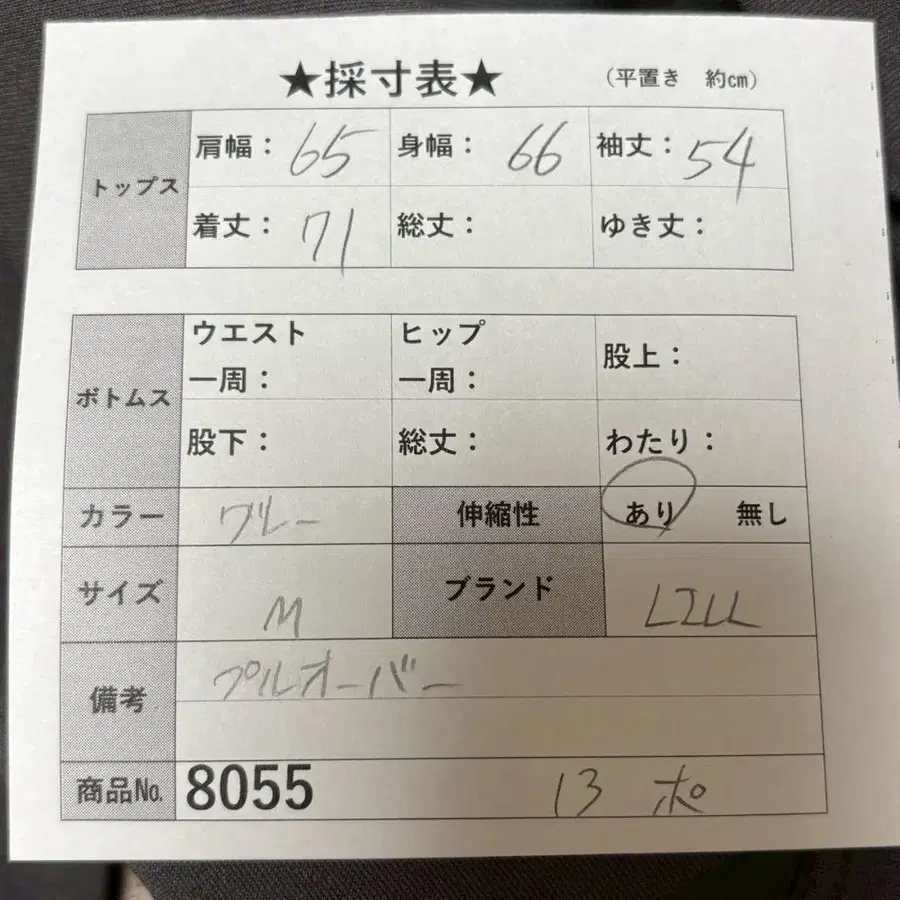 ★採寸表★ (平置き 約cm)
トップス
肩幅：65 身幅：66 袖丈：54
着丈：71 総丈： ゆき丈：
ボトムス
ウエスト一周： ヒップ一周： 股上：
股下： 総丈： わたり：
カラー ブルー 伸縮性 あり 無し
サイズ M ブランド
備考 プルオーバー
商品No. 8055 13 ポ